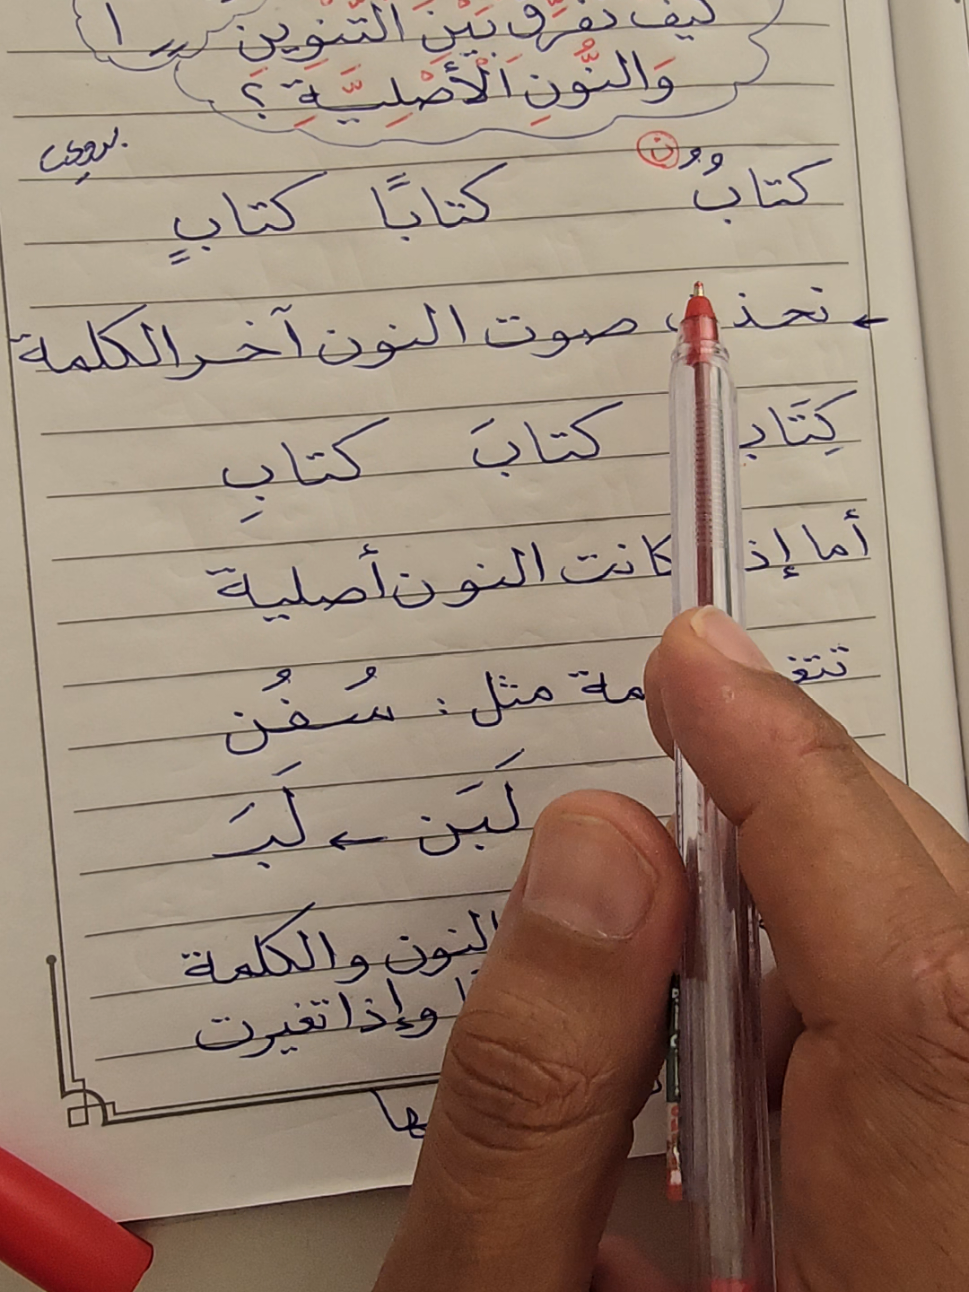 كيف نفرق بَيْنَ التَّنْوِين
وَالنُّونِ الْأَصْلِيَّةِ؟
كتابٌ ن كتابًا كتابٍ
← نحذف صوت النون آخر الكلمة
كِتَاب كتابَ كتابِ
أما إذا كانت النون أصلية
مثل : سُفُن
لَبَن ← لَبَ
النون والكلمة
وإذا تغيرت